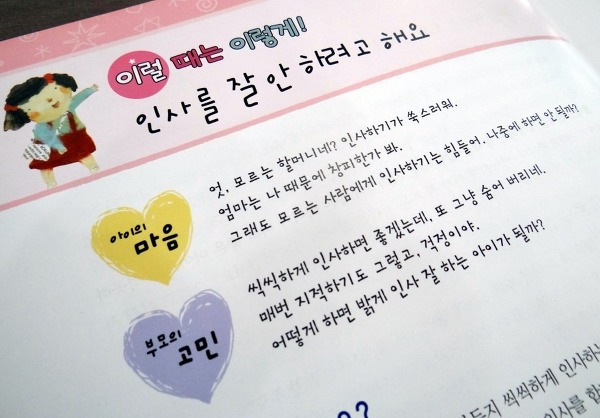 이럴 때는 이렇게!
인사를 잘 안 하려고 해요
아이의 마음
엇, 모르는 할머니네? 인사하기가 쑥스러워.
엄마는 나 때문에 창피한가 봐.
그래도 모르는 사람에게 인사하기는 힘들어. 나중에 하면 안 될까?
부모의 고민
씩씩하게 인사하면 좋겠는데, 또 그냥 숨어 버리네.
매번 지적하기도 그렇고, 걱정이야.
어떻게 하면 밝게 인사 잘 하는 아이가 될까?
씩씩하게 인사하는